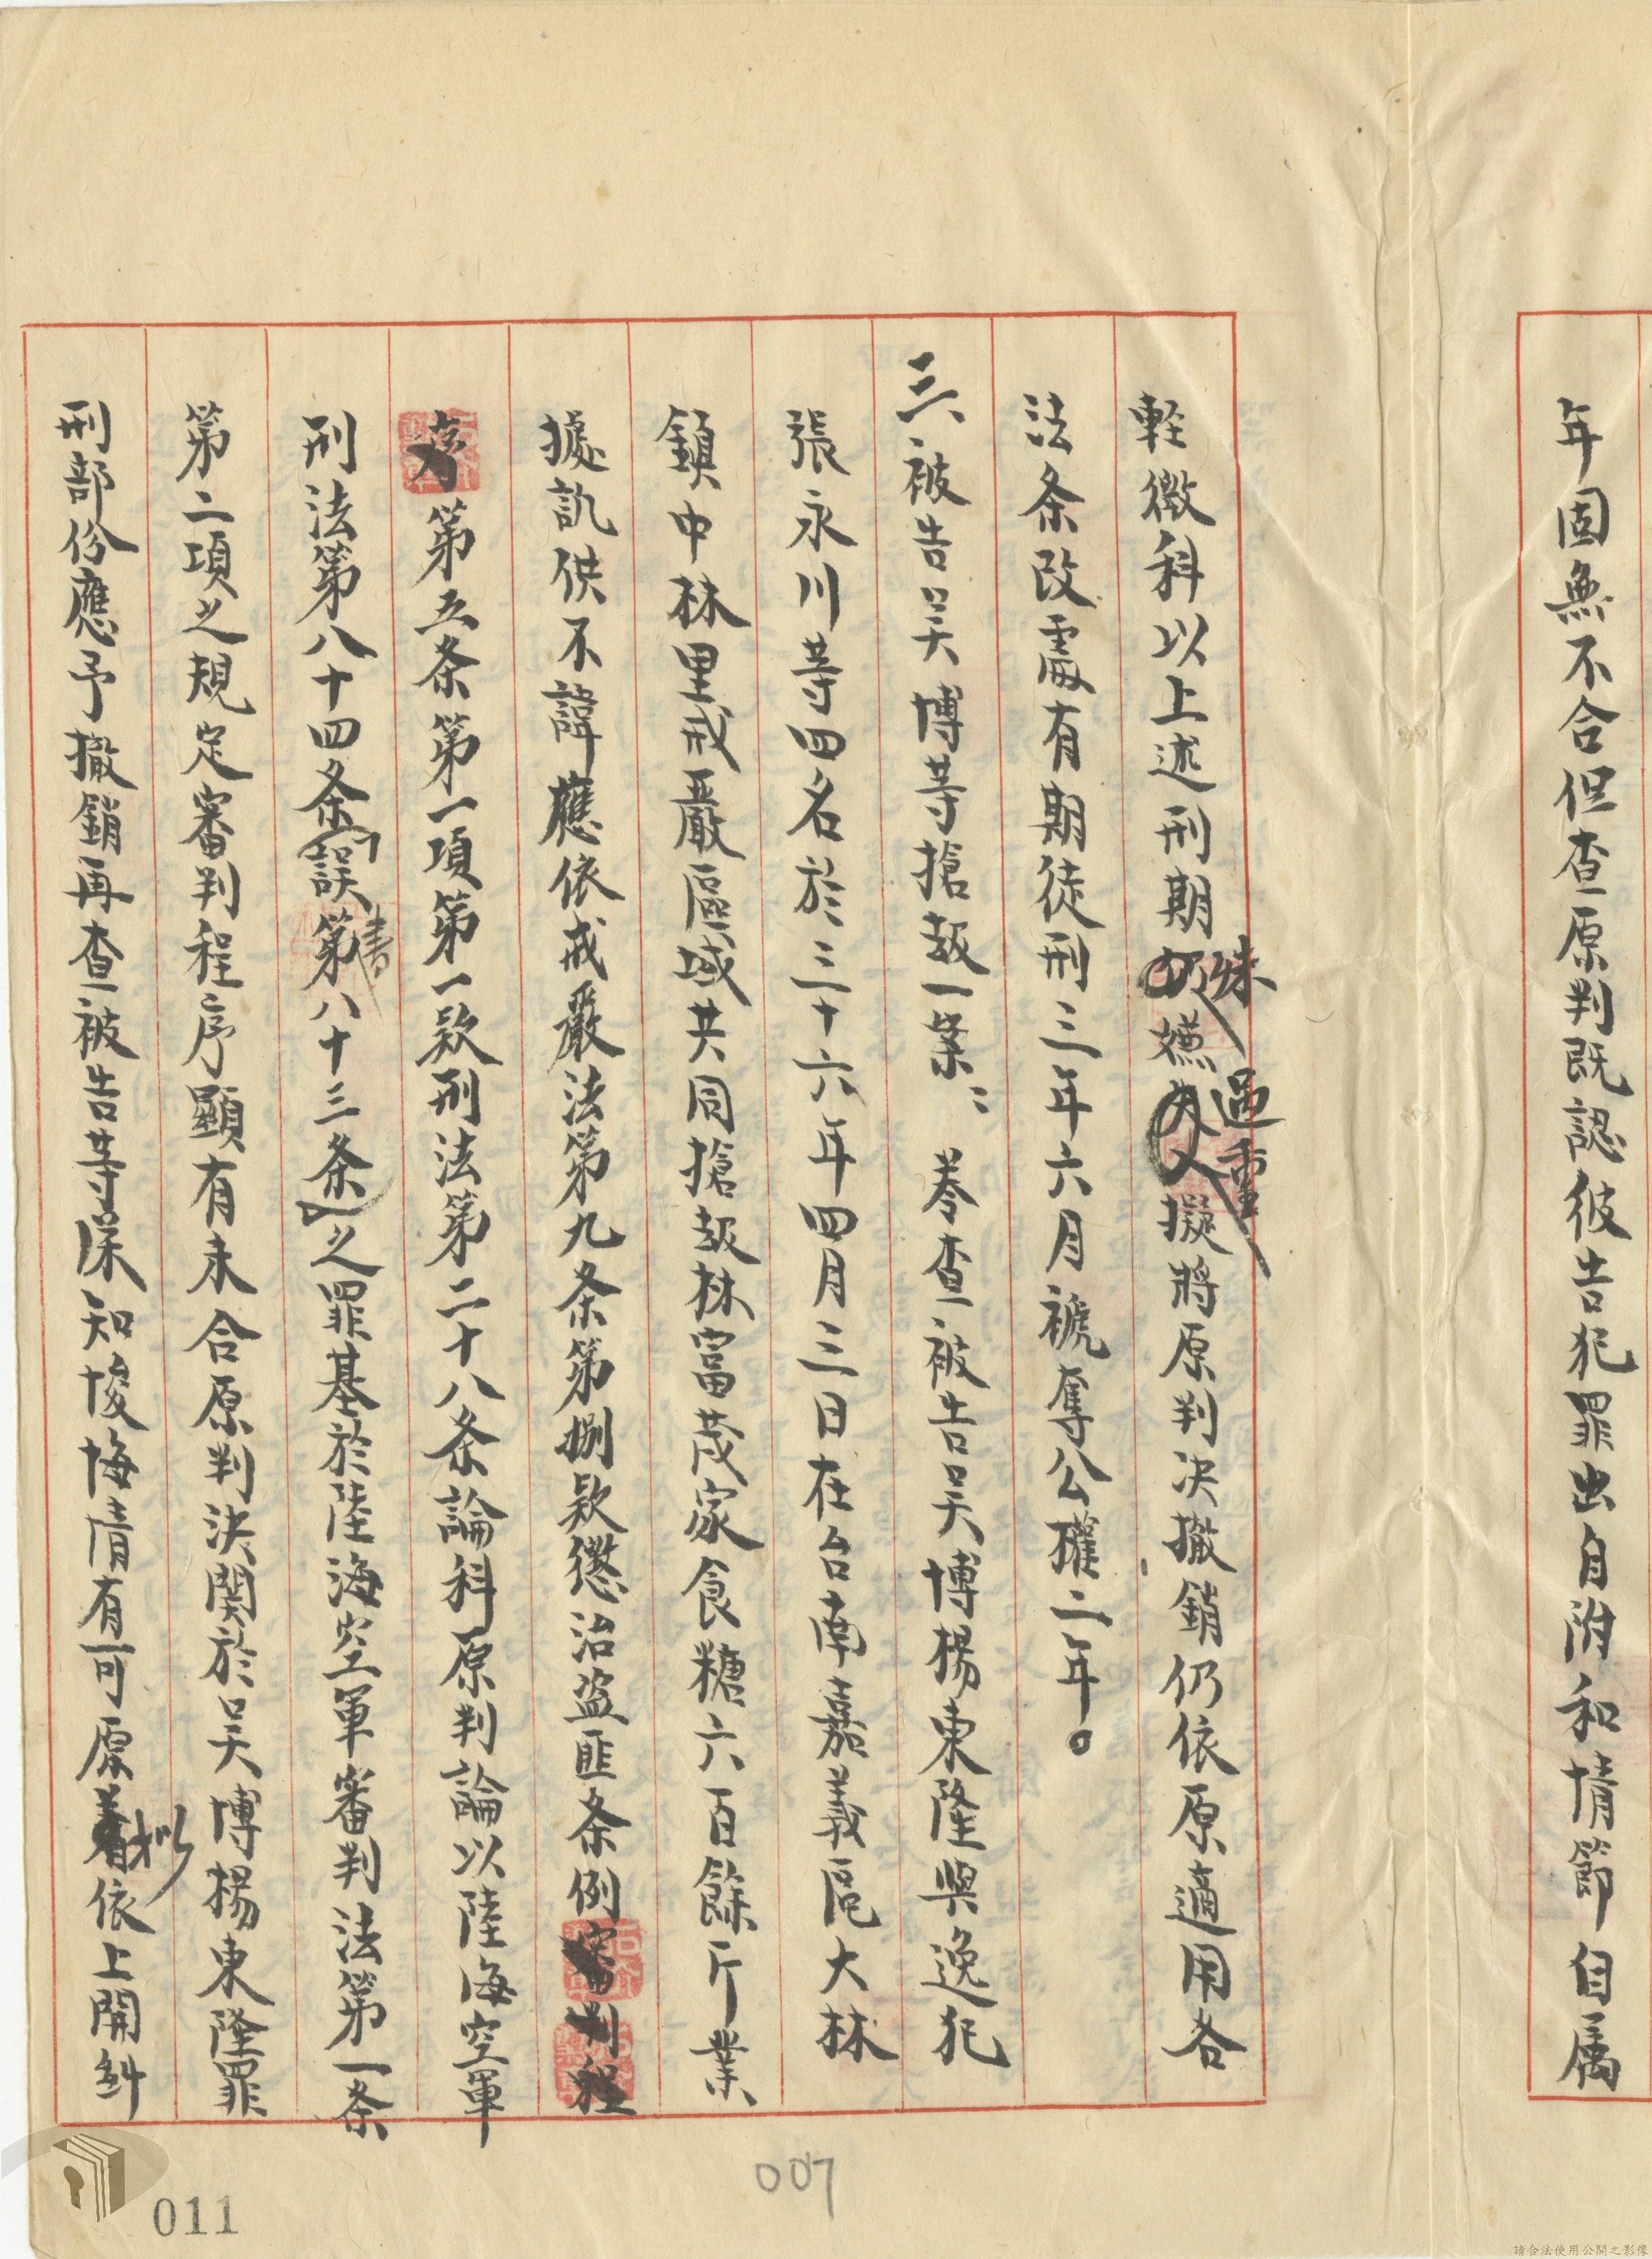 年固無不合但查原判既認彼告犯罪出自附和情節自属
軽微科以上述刑期殊嫌過重擬將原判决撤銷仍依原適用各
法条改處有期徒刑三年六月褫奪公權二年。
三、被告吴博等搶劫一案：養查被告吴博楊東隆與逸犯
張永川等四名於三十六年四月三日在台南嘉義區大林
鎮中林里戒嚴區域共同搶劫林富茂家食糖六百餘斤業
據訊供不諱應依戒嚴法第九条第捌款懲治盗匪条例審判程
序第五条第一項第一款刑法第二十八条論科原判論以陸海空軍
刑法第八十四条（誤書第八十三条）之罪基於陸海空軍審判法第一条
第二項之規定審判程序顯有未合原判決関於吴博楊東隆罪
刑部份應予撤銷再查被告等深知悛悔情有可原擬以依上開糾
007
011
請合法使用公開之影像